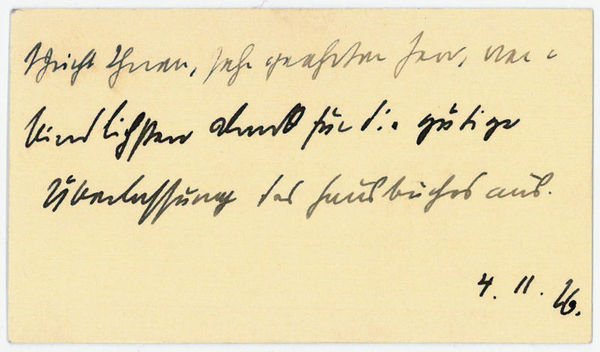 spricht Ihnen, sehr geehrter Herr, ver-
bindlichsten Dank für die gütige
Überlassung des Hausbuches aus.
4. 11. 26.